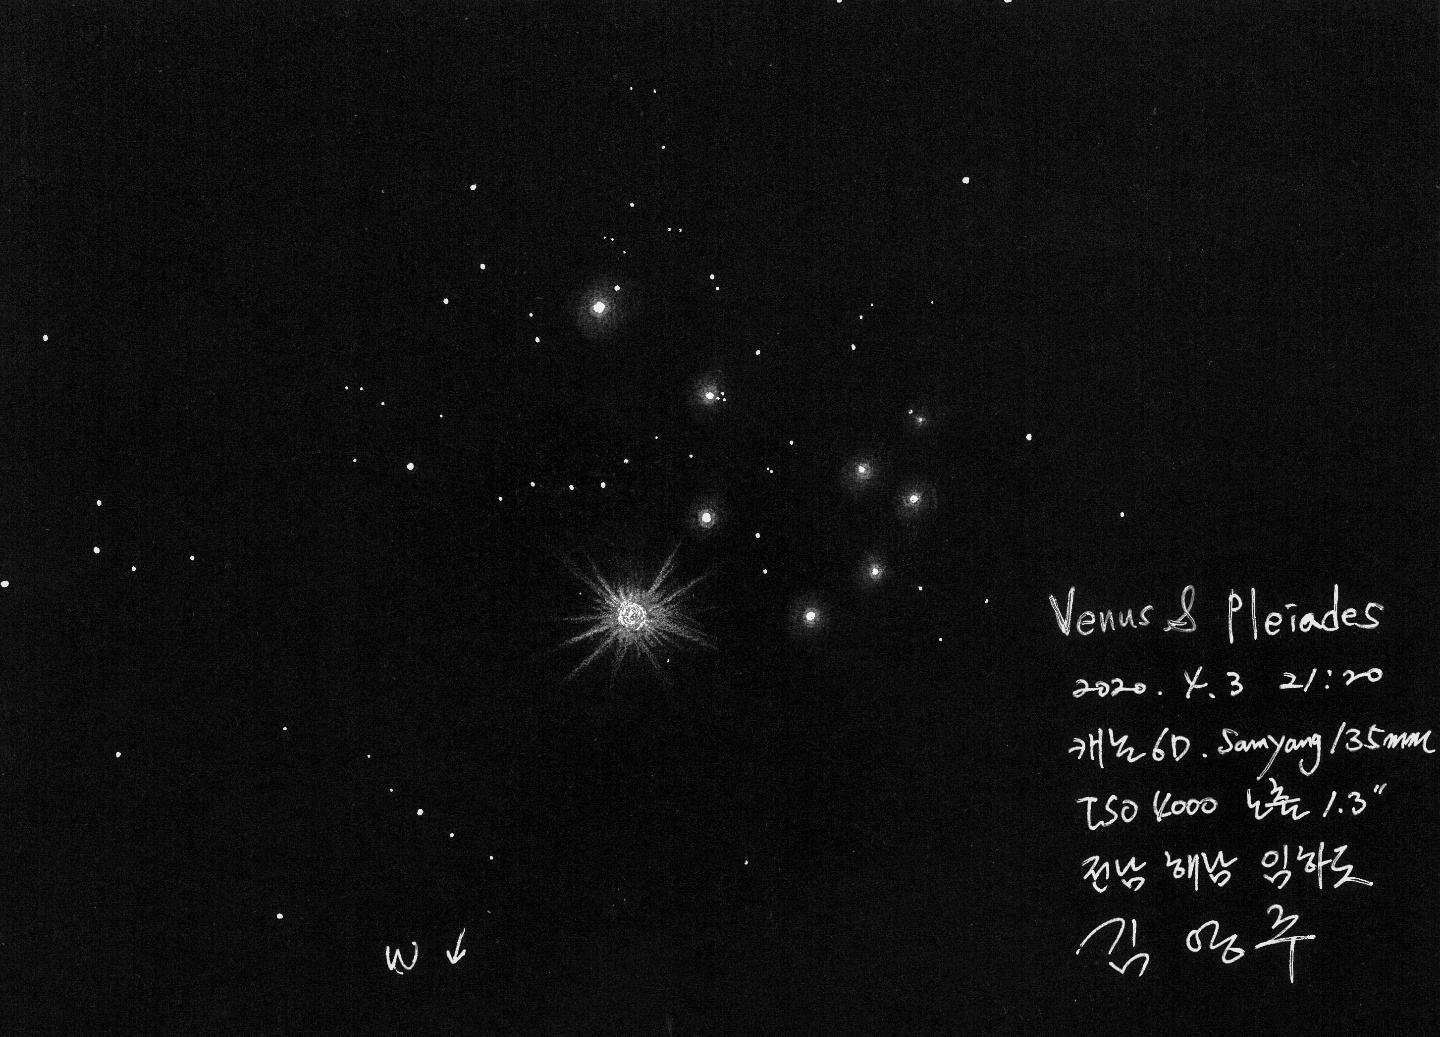 Venus & Pleiades
2020. 4. 3 21:20
캐논 6D. Samyang 135mm
ISO 4000 노출 1.3"
전남 해남 임하도
김
W ↓